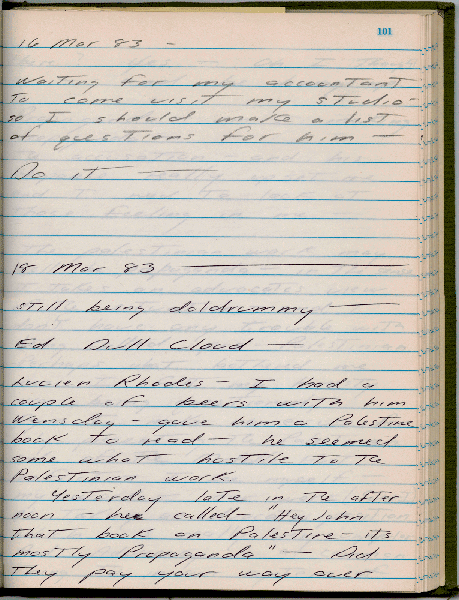 101
16 Mar 83 -
Waiting for my accountant
To come visit my studio -
so I should make a list
of questions for him —
Do it —
18 Mar 83 —
still being doldrummy —
Ed Dull Cloud —
Lucien Rhodes - I had a
couple of beers with him
Wensday - gave him a Palestine
book to read - he seemed
some what hostile To The
Palestinian work.
Yesterday late in Te after
noon - he called - "Hey John
that book on Palestine - its
mostly Propaganda" - Did
They pay your way over